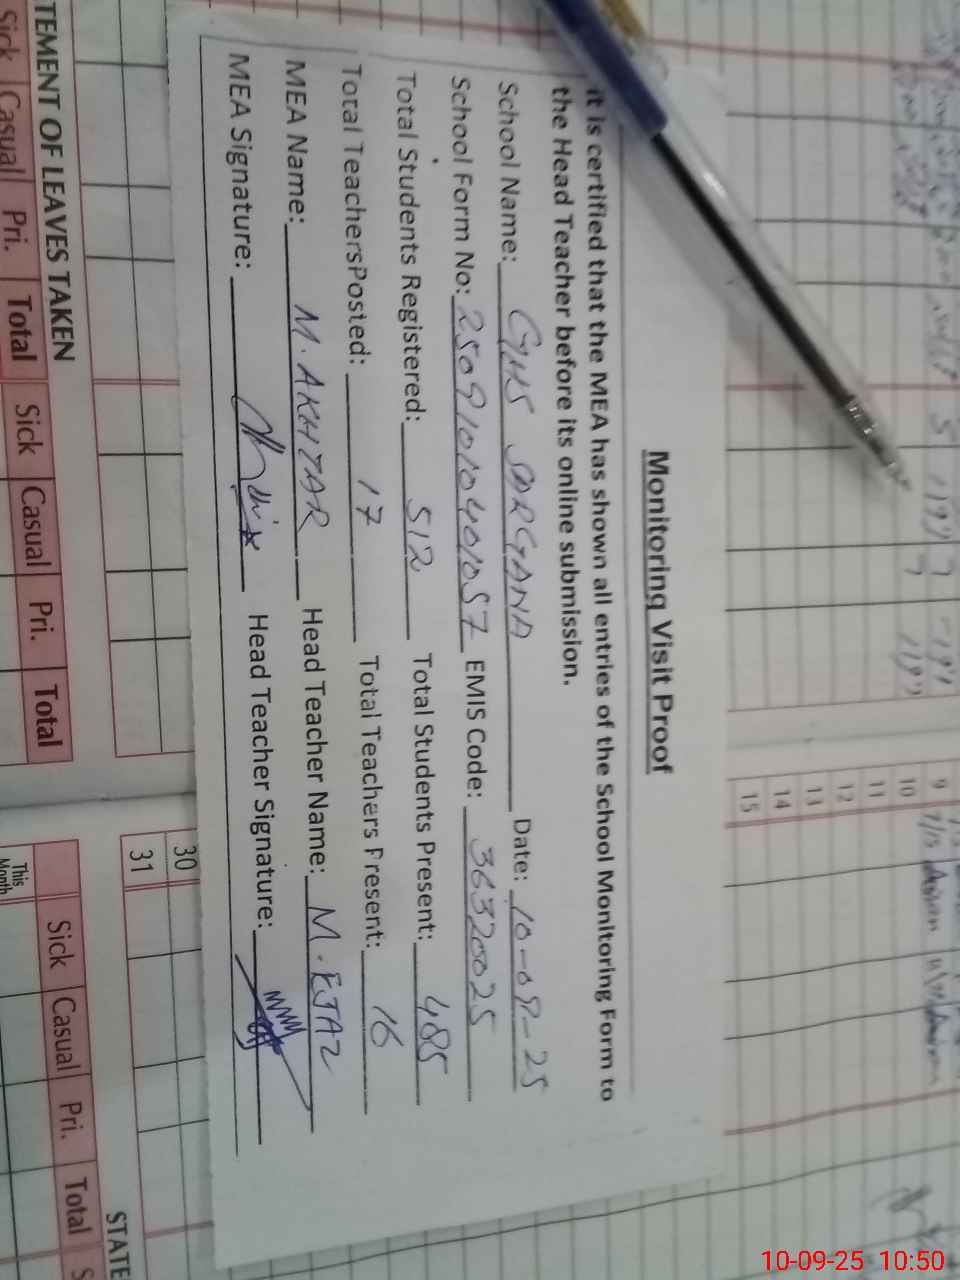 Monitoring Visit Proof
it is certified that the MEA has shown all entries of the School Monitoring Form to
the Head Teacher before its online submission.
School Name: GHS SARGANA Date: 10-09-25
School Form No: 25091010401057 EMIS Code: 36320025
Total Students Registered: 512 Total Students Present: 485
Total TeachersPosted: 17 Total Teachers Present: 16
MEA Name: M. AKHTAR Head Teacher Name: M. EJAZ
MEA Signature: Head Teacher Signature:
TEMENT OF LEAVES TAKEN
Sick Casual Pri. Total Sick Casual Pri. Total
9
10
11
12
13
14
15
30
31
STATE
This Month
Sick Casual Pri. Total S
10-09-25 10:50